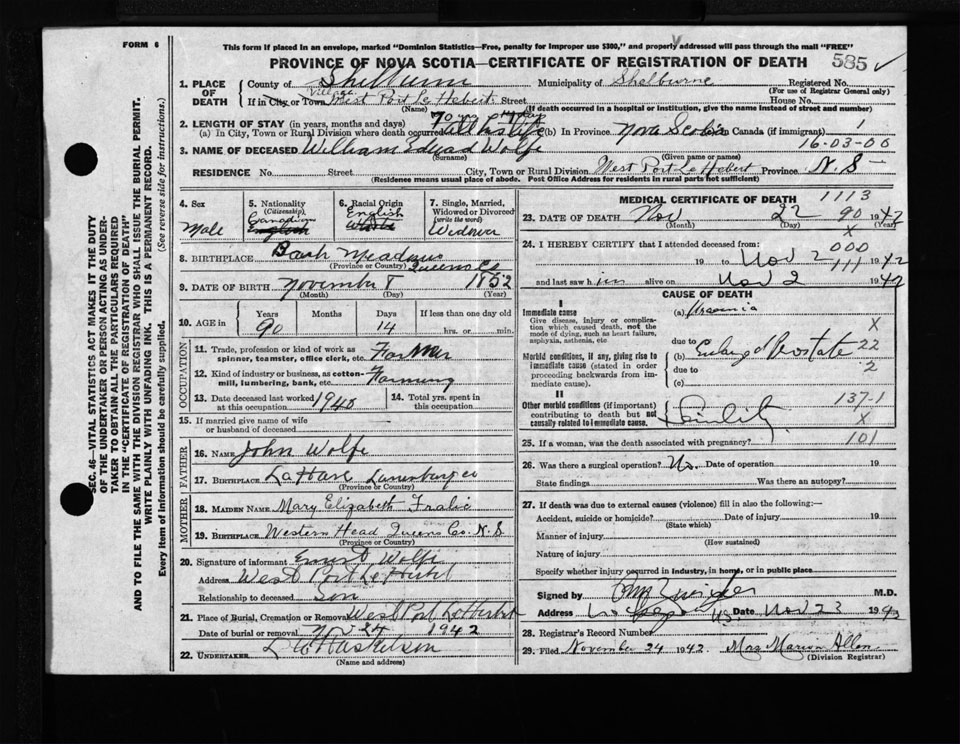 FORM 6
This form if placed in an envelope, marked "Dominion Statistics—Free, penalty for improper use $300," and properly addressed will pass through the mail "FREE"
PROVINCE OF NOVA SCOTIA—CERTIFICATE OF REGISTRATION OF DEATH
585 ✓
1. PLACE OF DEATH
County of Shelburne Municipality of Shelburne Registered No.
(For use of Registrar General only)
Village
If in City or Town West Port Le Hebert Street House No.
(Name) (If death occurred in a hospital or institution, give the name instead of street and number)
2. LENGTH OF STAY (in years, months and days)
(a) In City, Town or Rural Division where death occurred all his life (b) In Province Nova Scotia Canada (if immigrant) 1
16-03-00
3. NAME OF DECEASED William Edward Wolfe
(Surname) (Given name or names)
RESIDENCE No. Street City, Town or Rural Division West Port Le Hebert Province N.S
(Residence means usual place of abode. Post Office Address for residents in rural parts not sufficient)
4. Sex
Male
5. Nationality
(Citizenship)
Canadian
English
6. Racial Origin
English
White
7. Single, Married, Widowed or Divorced
(write the word)
Widower
8. BIRTHPLACE Bank Meadows
(Province or Country) Queens Co
9. DATE OF BIRTH November 8 1852
(Month) (Day) (Year)
10. AGE in
Years Months Days If less than one day
90 14 hrs. or min.
OCCUPATION
11. Trade, profession or kind of work as spinner, teamster, office clerk, etc. Farmer
12. Kind of industry or business, as cotton-mill, lumbering, bank, etc. Farming
13. Date deceased last worked at this occupation 1940
14. Total yrs. spent in this occupation
15. If married give name of wife or husband of deceased
FATHER
16. NAME John Wolfe
17. BIRTHPLACE LaHave Lunenburg Co
(Province or Country)
MOTHER
18. MAIDEN NAME Mary Elizabeth Fralic
19. BIRTHPLACE Western Head Queens Co. N.S
(Province or Country)
20. Signature of informant Ernest Wolfe
Address West Port Le Hebert
Relationship to deceased son
21. Place of Burial, Cremation or Removal West Port Le Hebert
Date of burial or removal Nov 24 1942
22. UNDERTAKER
(Name and address)
MEDICAL CERTIFICATE OF DEATH 1113
23. DATE OF DEATH Nov 22 90 1942
(Month) (Day) (Year)
X
24. I HEREBY CERTIFY that I attended deceased from:
000
19 to Nov 2 111 1942
and last saw him alive on Nov 2 1942
CAUSE OF DEATH
I
Immediate cause
Give disease, injury or complication which caused death, not the mode of dying, such as heart failure, asphyxia, asthenia, etc
(a) Uraemia
X
due to
Morbid conditions, if any, giving rise to immediate cause (stated in order proceeding backwards from immediate cause).
(b) Enlarged Prostate 22
due to 2
(c)
II
Other morbid conditions (if important) contributing to death but not causally related to immediate cause.
137-1
Senility X
101
25. If a woman, was the death associated with pregnancy?
26. Was there a surgical operation? No. Date of operation 19
State findings Was there an autopsy?
27. If death was due to external causes (violence) fill in also the following:—
Accident, suicide or homicide? Date of injury 19
(State which)
Manner of injury
(How sustained)
Nature of injury
Specify whether injury occurred in industry, in home, or in public place
Signed by M.D.
Address N.S. Date Nov 23 1942
28. Registrar's Record Number
29. Filed November 24 1942 Mrs Marion Allen
(Division Registrar)
SEC. 46—VITAL STATISTICS ACT MAKES IT THE DUTY
OF THE UNDERTAKER OR PERSON ACTING AS UNDER-
TAKER TO OBTAIN ALL THE PARTICULARS REQUIRED
IN THE "CERTIFICATE OF REGISTRATION OF DEATH"
AND TO FILE THE SAME WITH THE DIVISION REGISTRAR WHO SHALL ISSUE THE BURIAL PERMIT.
WRITE PLAINLY WITH UNFADING INK. THIS IS A PERMANENT RECORD.
Every item of information should be carefully supplied. (See reverse side for instructions.)